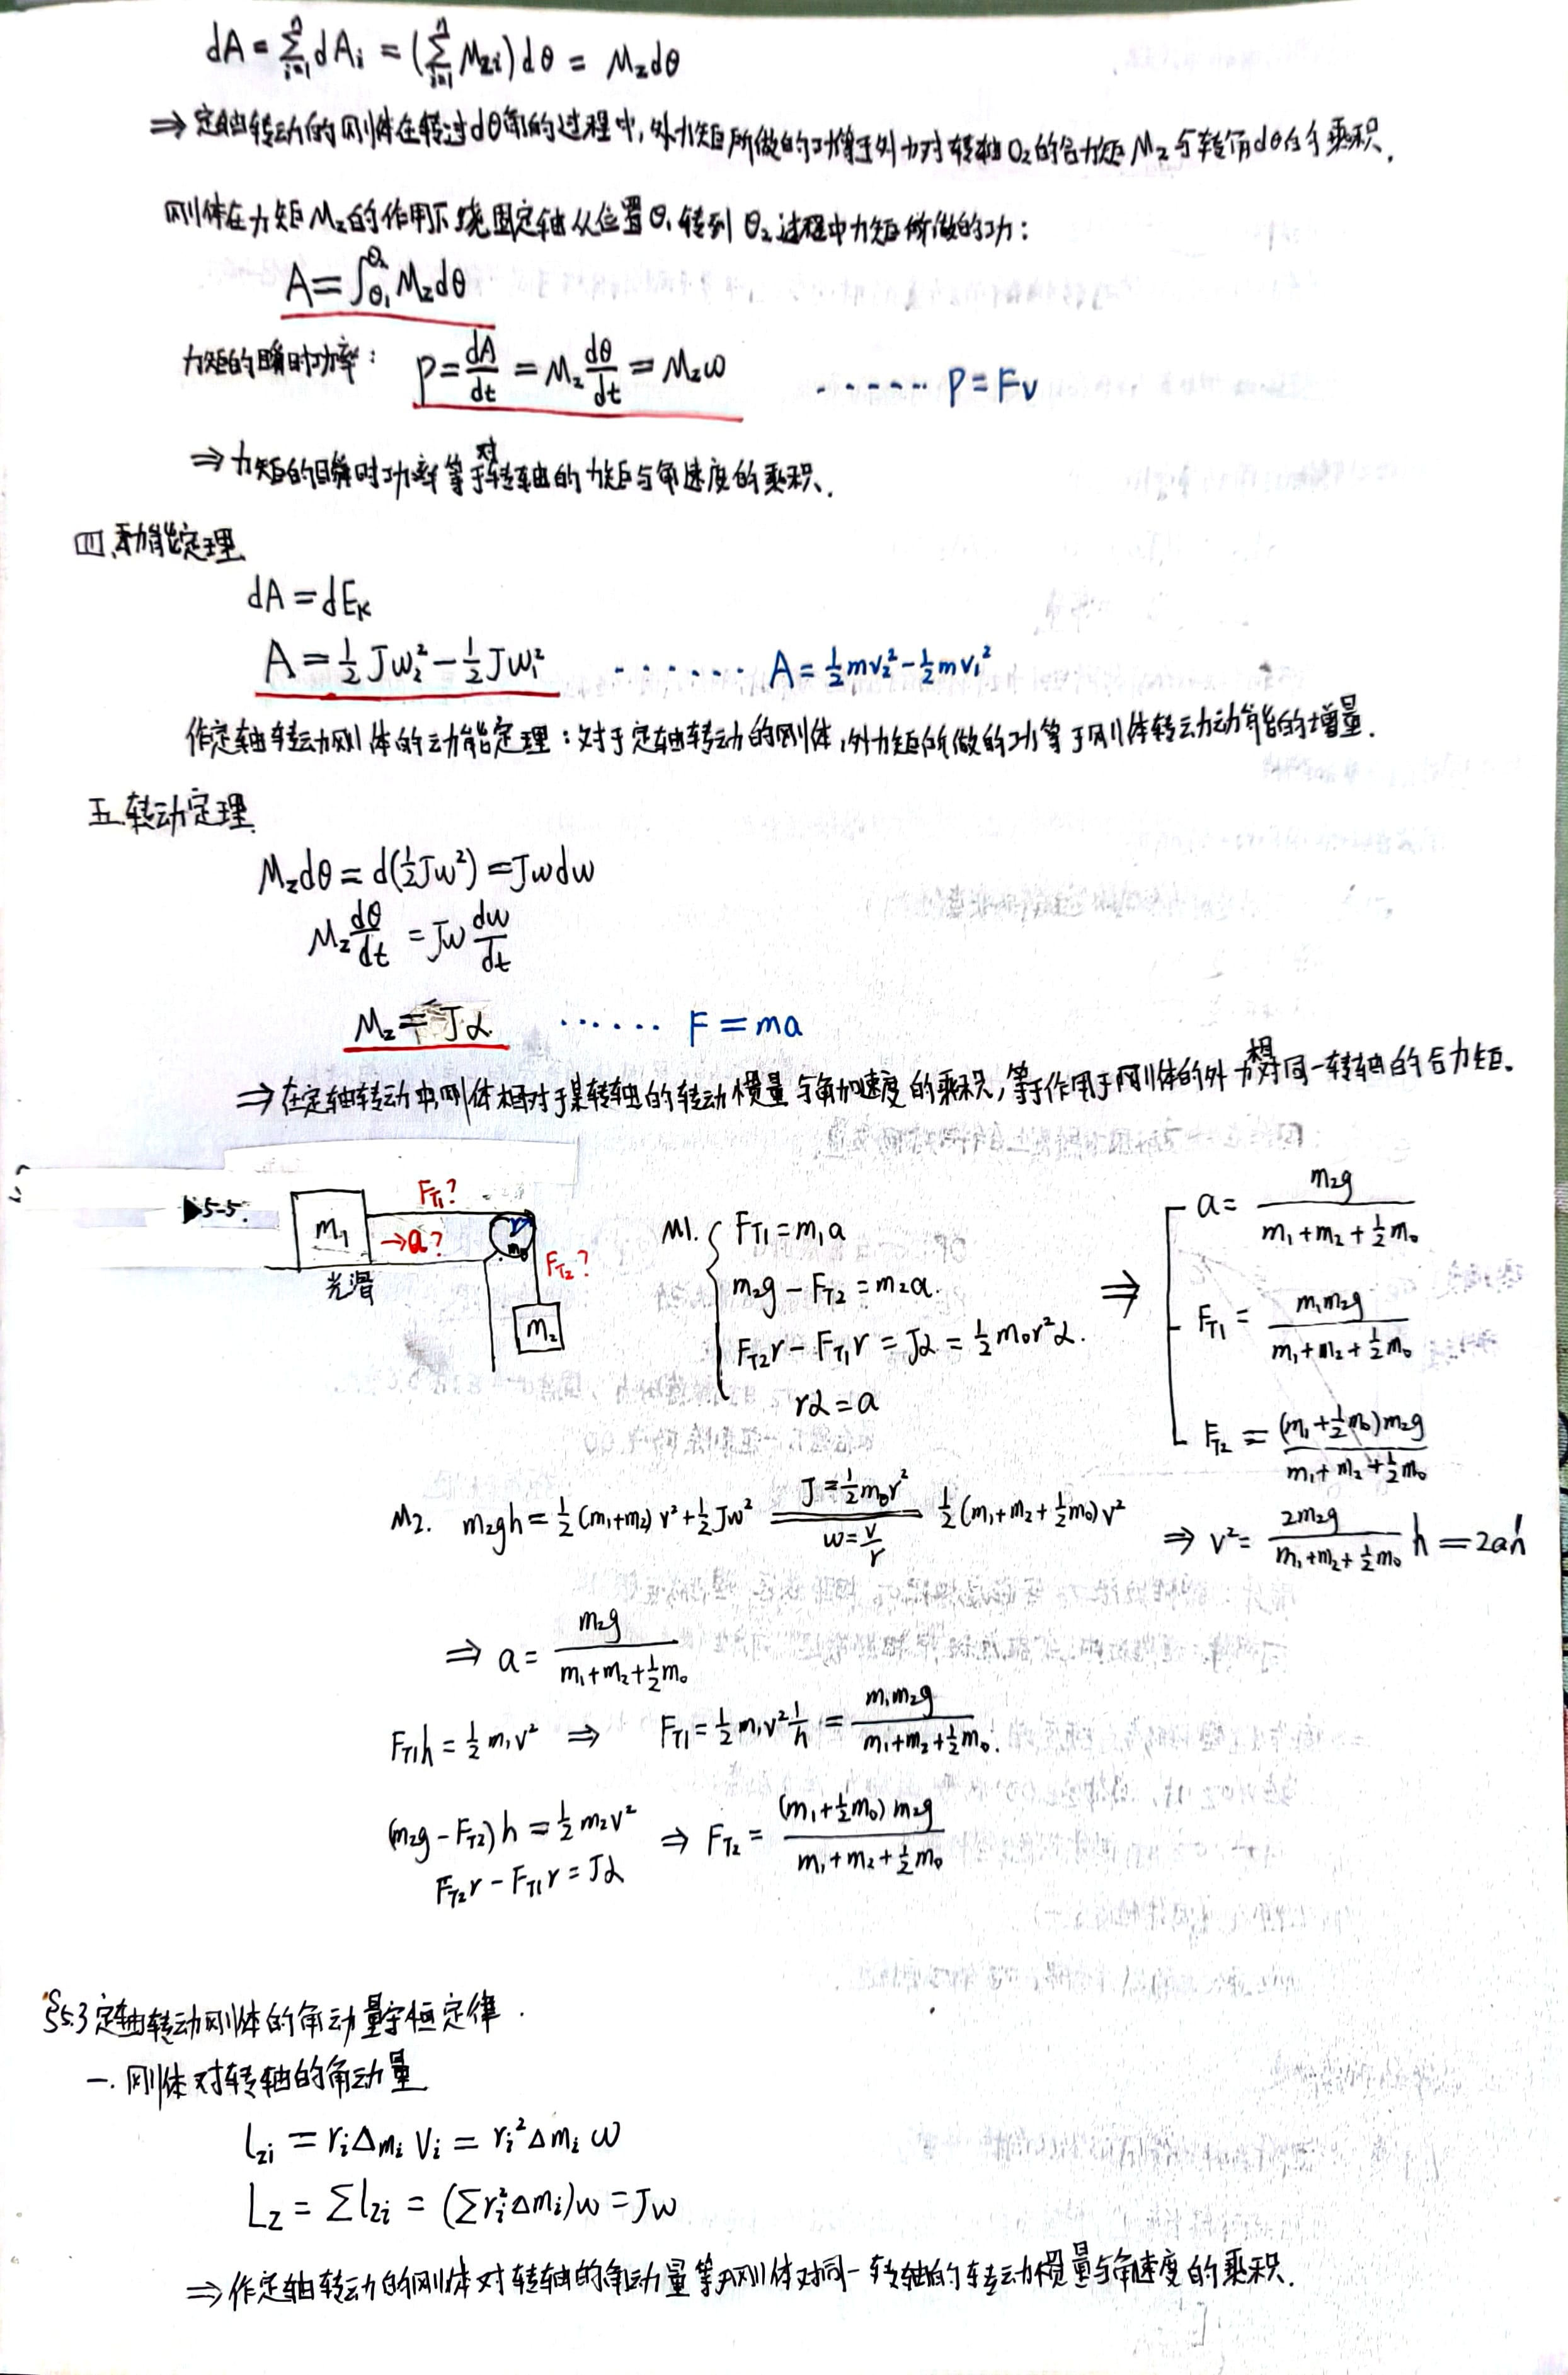 dA = Σ_{i=1}^{n} dA_i = (Σ_{i=1}^{n} M_{zi}) dθ = M_z dθ
⇒ 定轴转动的刚体在转过dθ角的过程中,外力矩所做的功等于外力对转轴Oz的合力矩M_z与转角dθ的乘积.
刚体在力矩M_z的作用下绕固定轴从位置θ₁转到θ₂过程中力矩所做的功:
A = ∫_{θ₁}^{θ₂} M_z dθ
力矩的瞬时功率: P = dA/dt = M_z dθ/dt = M_z ω ······ P = Fv
⇒ 力矩的瞬时功率等于对转轴的力矩与角速度的乘积.
四.动能定理
dA = dE_K
A = ½Jω₂² − ½Jω₁² ······ A = ½mv₂² − ½mv₁²
作定轴转动刚体的动能定理:对于定轴转动的刚体,外力矩所做的功等于刚体转动动能的增量.
五.转动定理
M_z dθ = d(½Jω²) = Jω dω
M_z dθ/dt = Jω dω/dt
M_z = Jα ······ F = ma
⇒ 在定轴转动中,刚体相对于某转轴的转动惯量与角加速度的乘积,等于作用于刚体的外力相对同一转轴的合力矩.
▶5-5.
F_{T1}?
m₁
→a?
r
m₀
F_{T2}?
光滑
m₂
M1. { F_{T1} = m₁a
m₂g − F_{T2} = m₂a.
F_{T2}r − F_{T1}r = Jα = ½m₀r²α.
rα = a
⇒ a = m₂g / (m₁+m₂+½m₀)
F_{T1} = m₁m₂g / (m₁+m₂+½m₀)
F_{T2} = (m₁+½m₀)m₂g / (m₁+m₂+½m₀)
M2. m₂gh = ½(m₁+m₂)v² + ½Jω² ═(J=½m₀r², ω=v/r)═ ½(m₁+m₂+½m₀)v² ⇒ v² = 2m₂g / (m₁+m₂+½m₀) h = 2ah
⇒ a = m₂g / (m₁+m₂+½m₀)
F_{T1}h = ½m₁v² ⇒ F_{T1} = ½m₁v² 1/h = m₁m₂g / (m₁+m₂+½m₀).
(m₂g − F_{T2})h = ½m₂v² ⇒ F_{T2} = (m₁+½m₀)m₂g / (m₁+m₂+½m₀)
F_{T2}r − F_{T1}r = Jα
§5.3 定轴转动刚体的角动量守恒定律.
一.刚体对转轴的角动量
l_{zi} = r_i Δm_i v_i = r_i² Δm_i ω
L_z = Σl_{zi} = (Σr_i²Δm_i)ω = Jω
⇒ 作定轴转动的刚体对转轴的角动量等于刚体对同一转轴的转动惯量与角速度的乘积.